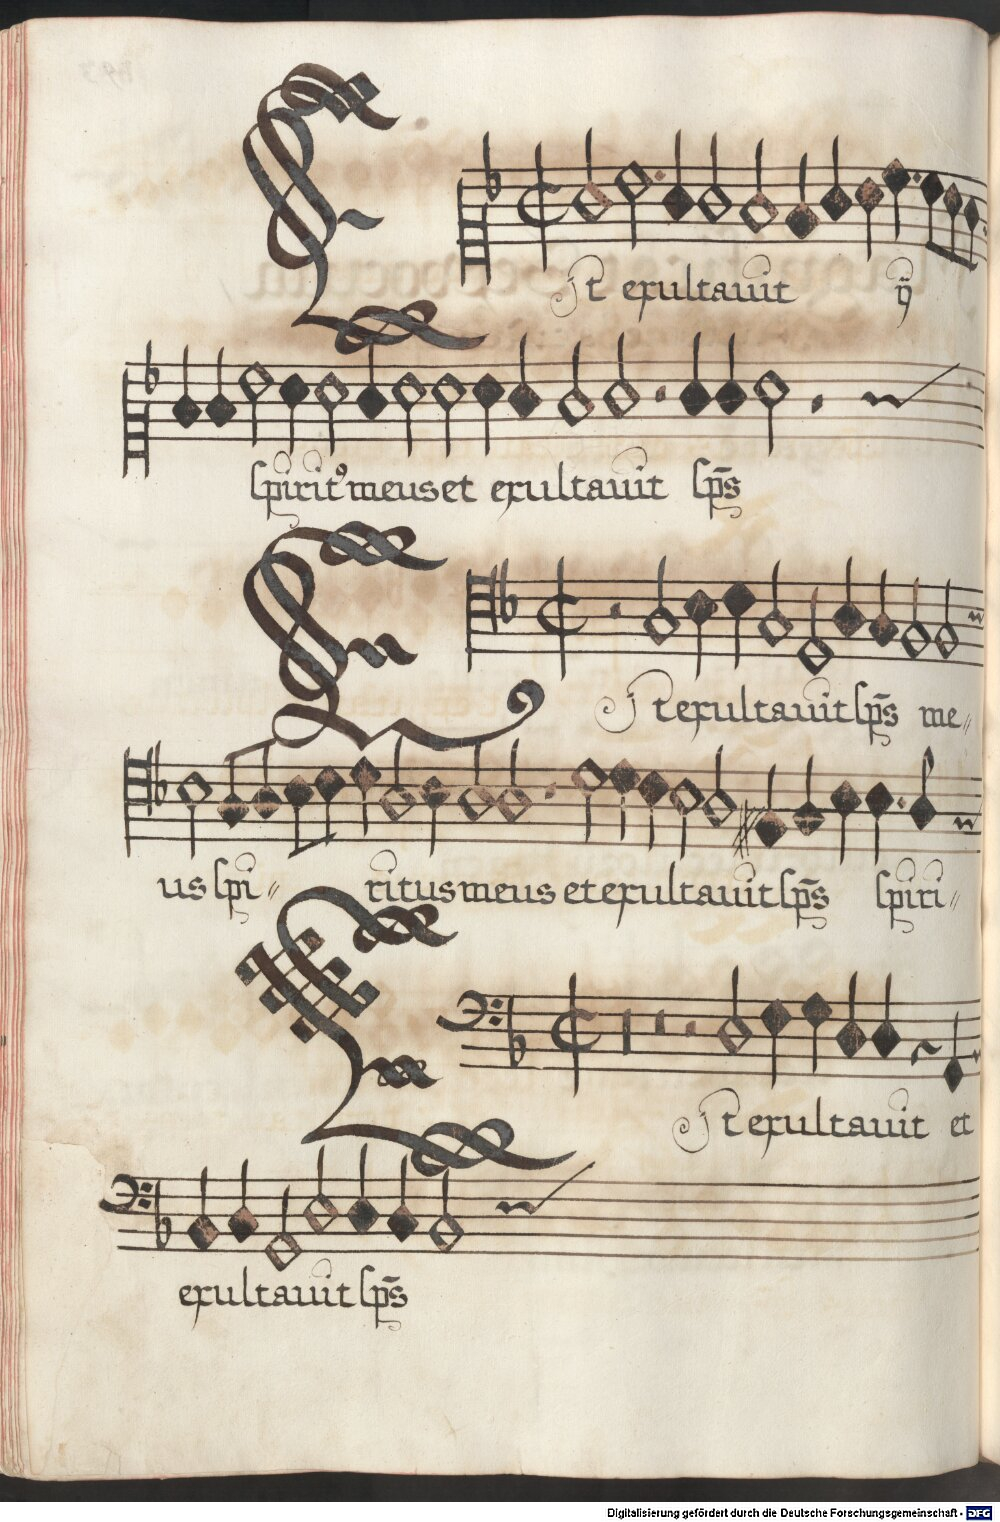 Et exultauit ij
spiritꝰ meus et exultauit sp̄s
Et exultauit sp̄s me〃
us spi〃 ritus meus et exultauit sp̄s spiri〃
Et exultauit et
exultauit sp̄s
Digitalisierung gefördert durch die Deutsche Forschungsgemeinschaft - DFG